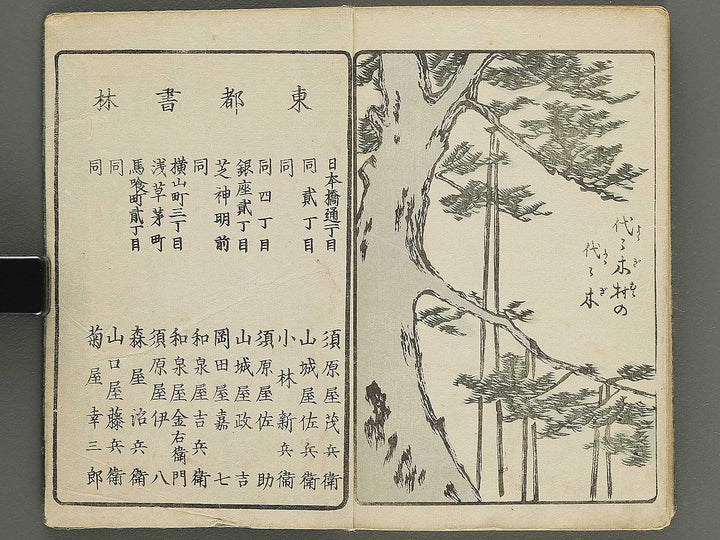 代々木村の
代々木
東都書林
日本橋通丁目
同貳丁目
同
同四丁目
銀座貳丁目
芝神明前
同
横山町三丁目
浅草茅町
馬喰町貳丁目
同
同
須原屋茂兵衛
山城屋佐兵衛
小林新兵衛
須原屋佐助
山城屋政吉
岡田屋嘉七
和泉屋吉兵衛
和泉屋金右衛門
須原屋伊八
森屋治兵衛
山口屋藤兵衛
菊屋幸三郎